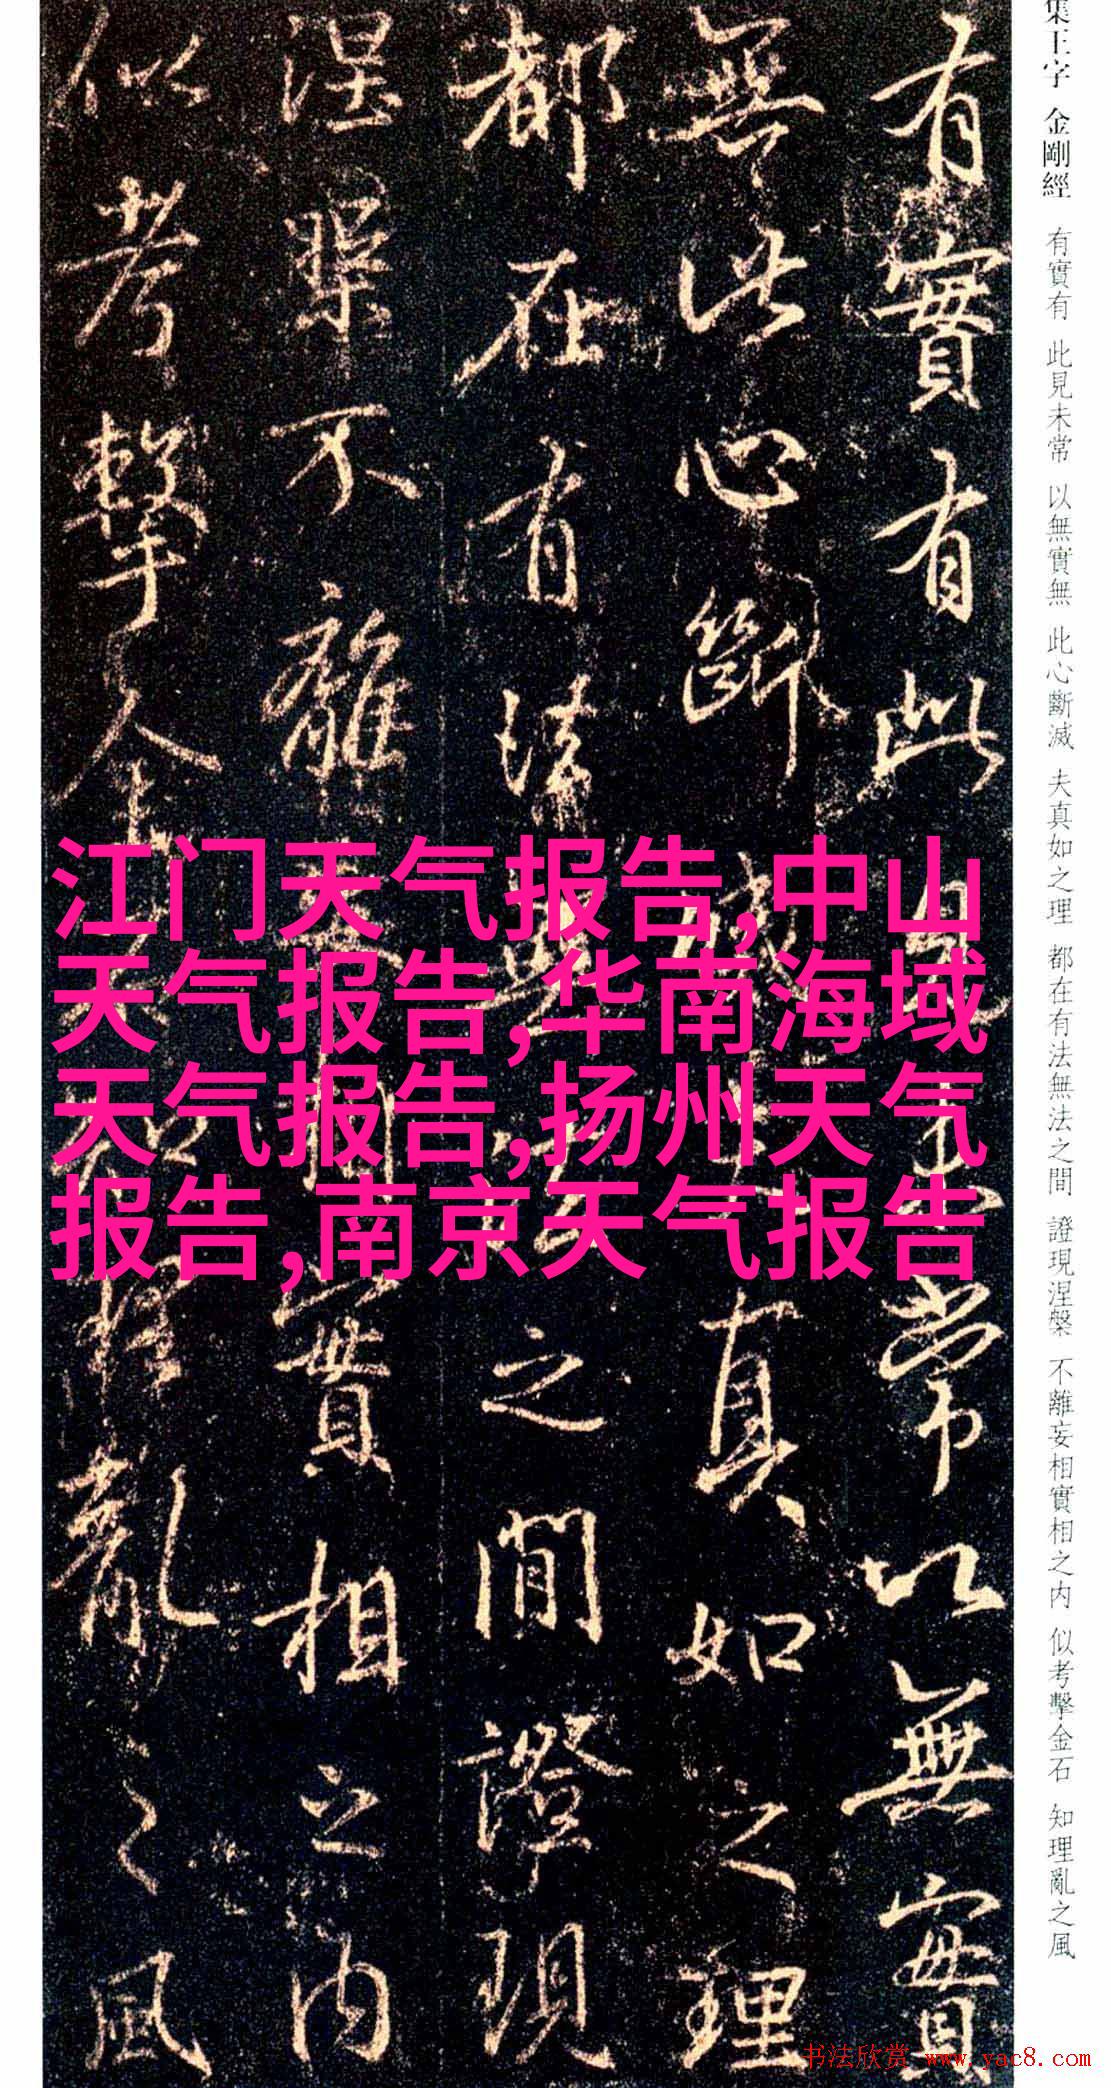 集王字 金剛經 有實有 此見未常 以無實無 此心斷滅 夫真如之理 都在有法無法之間 證現涅槃 不離妄相實相之内 似考擊金石 知理亂之風
有實有此見未常以無實
無此心斷滅夫真如之理
都在有法無法之間證現
涅槃不離妄相實相之内
似考擊金石知理亂之風
江门天气报告,中山
天气报告,华南海域
天气报告,扬州天气
报告,南京天气报告
书法欣赏 www.yac8.com